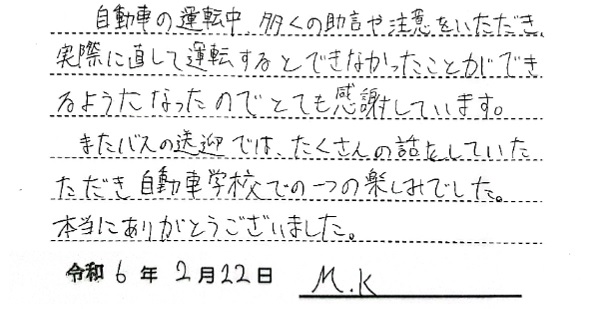 自動車の運転中、多くの助言や注意をいただき、
実際に直して運転するとできなかったことができ
るようたなったのでとても感謝しています。
またバスの送迎では、たくさんの話をしていた
ただき自動車学校での一つの楽しみでした。
本当にありがとうございました。
令和6年2月22日 M.K